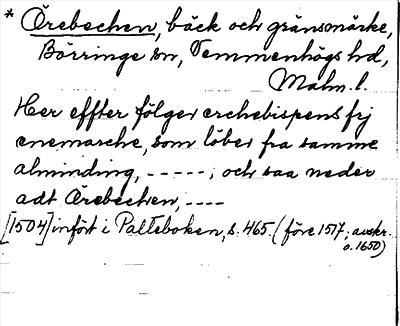 * Örebechen, bäck och gränsmärke,
Börringe sn, Vemmenhögs hd,
Malm. l.
Her effter følger erchebispens frj
enemarche, som løber fra samme
alminding, - - - - -; och saa neder
adt Örebechen, - - - -
[1504] infört i Palteboken, s. 465. (före 1517; avskr.
o. 1650)